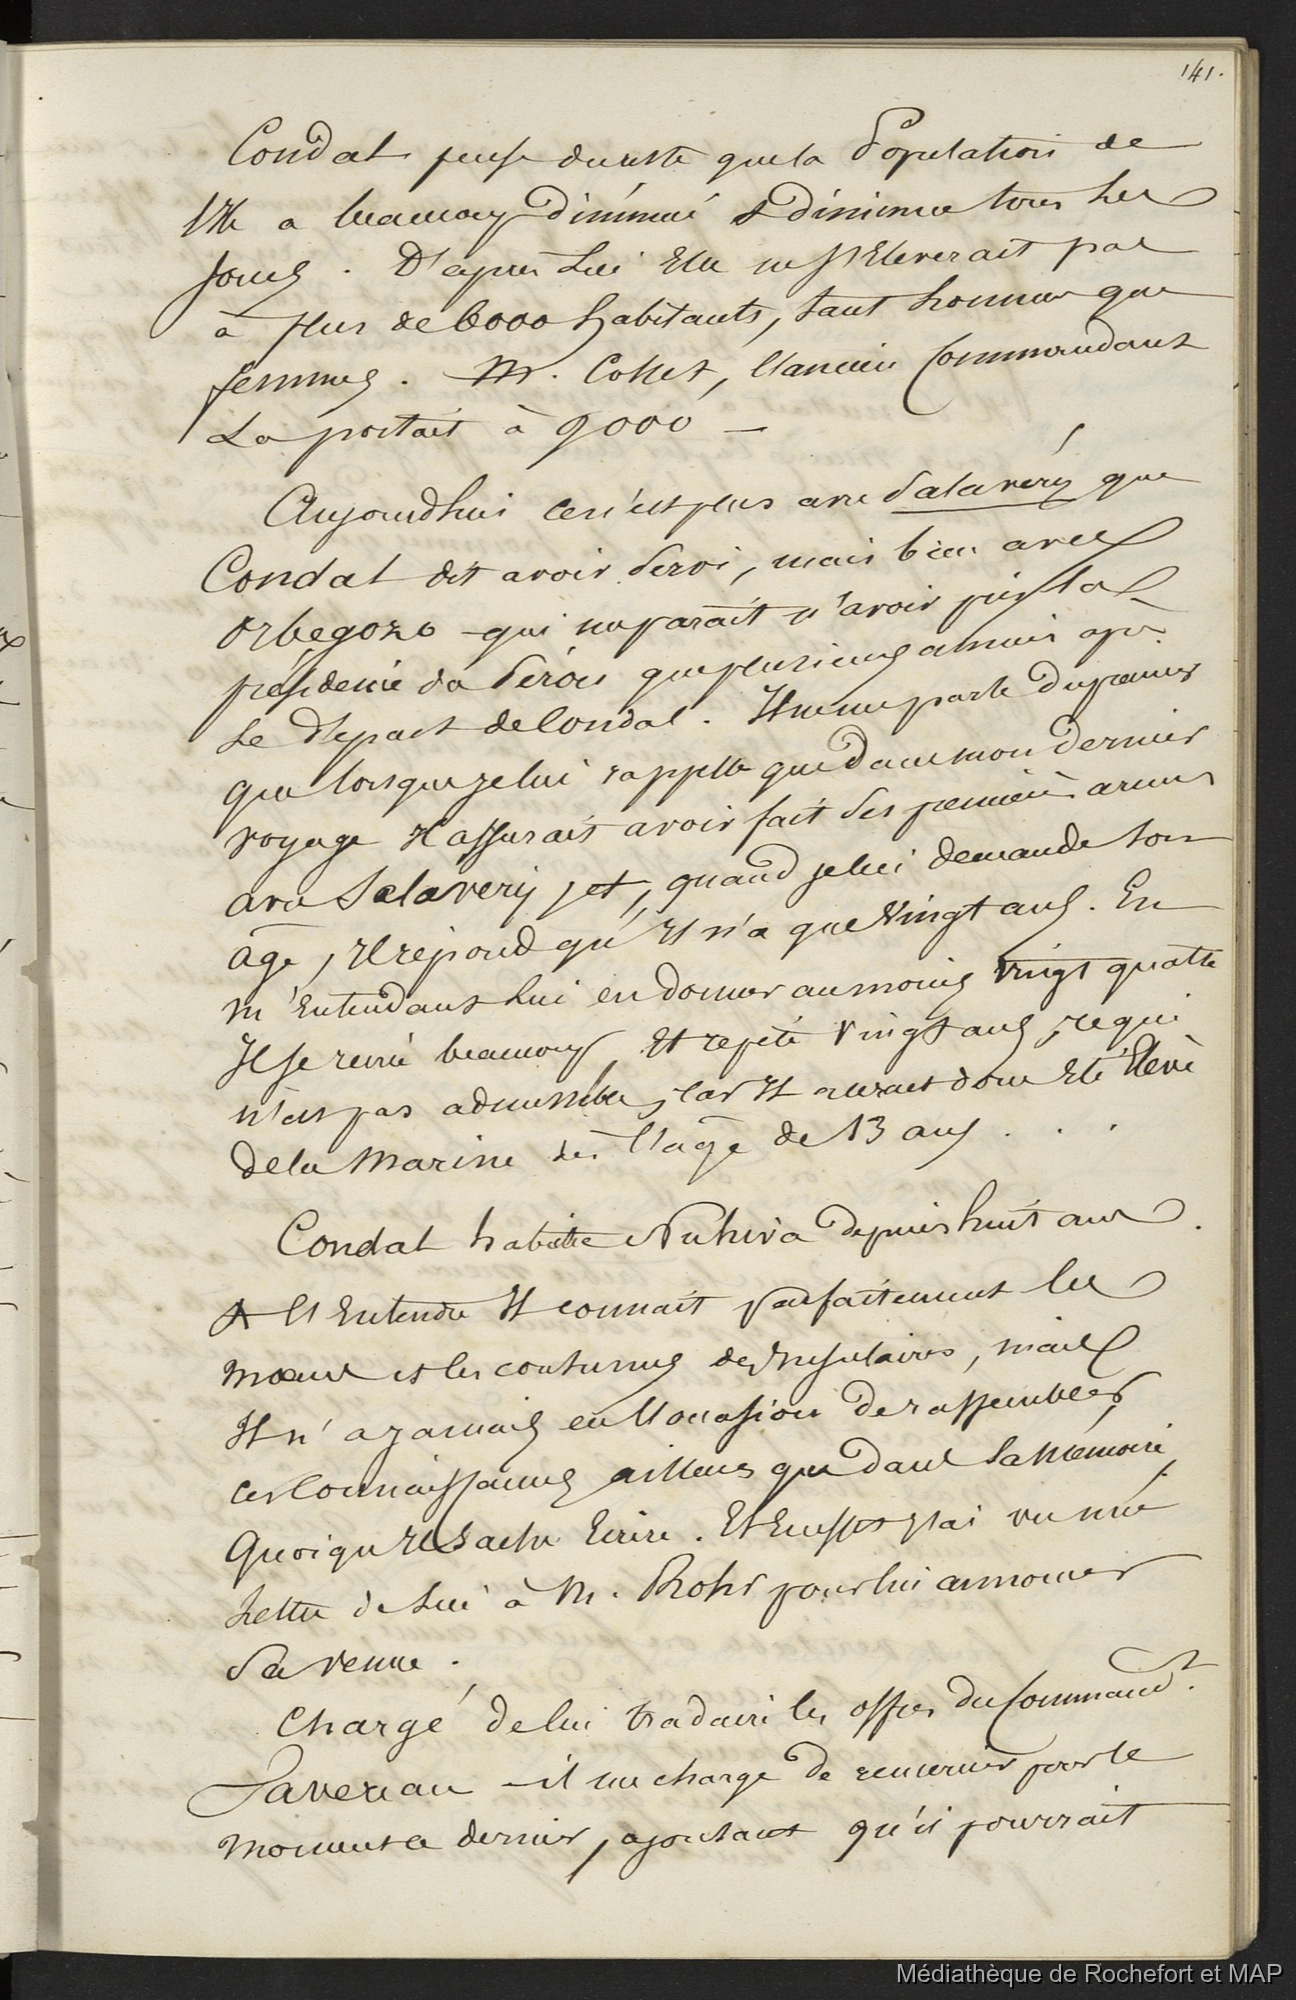 141.
Condat pense du reste que la Population de
l'île a beaucoup diminué & diminue tous les
jours. D'après Lui Elle ne s'Eleverait pas
à plus de 6000 habitants, tant hommes que
femmes. M. Collet, l'ancien Commandant
La portait à 9000 —
Aujourdhui ce n'est plus avec Salavéry que
Condat dit avoir Servi, mais bien avec
Orbegozo – qui me parait n'avoir pris la
présidence du Pérou que plusieurs années apr.
Le Départ de Condat. Il ne me parle du premier
que lorsque je lui rappelle que Dans mon Dernier
voyage Il assurait avoir fait Ses premières armes
avec Salavery, et, quand je lui demande Son
âge, Il répond qu'Il n'a que Vingt ans. En
m'Entendant Lui en donner au moins vingt quatre
Il se recrie beaucoup, Et repète Vingt ans, ce qui
n'est pas admissible, car Il aurait donc Eté Elevé
De la Marine dès l'âge de 13 ans . . .
Condat habite Nuhiva Depuis huit ans.
A l'Entendre Il connait parfaitement les
moeurs et les coutumes des Insulaires, mais
Il n'a jamais eu l'occasion De rassembler
ces Connaissances ailleurs que Dans Sa Mémoire,
Quoiqu'Il Sache Ecrire. Et En effet j'ai vu une
Lettre de Lui à M. Rohr pour lui annoncer
Sa venue.
Chargé de lui traduire les offres Du Command.t
Lavercau – il me charge De remercier pour le
moment ce dernier, ajoutant qu'il pourrait
Médiathèque de Rochefort et MAP